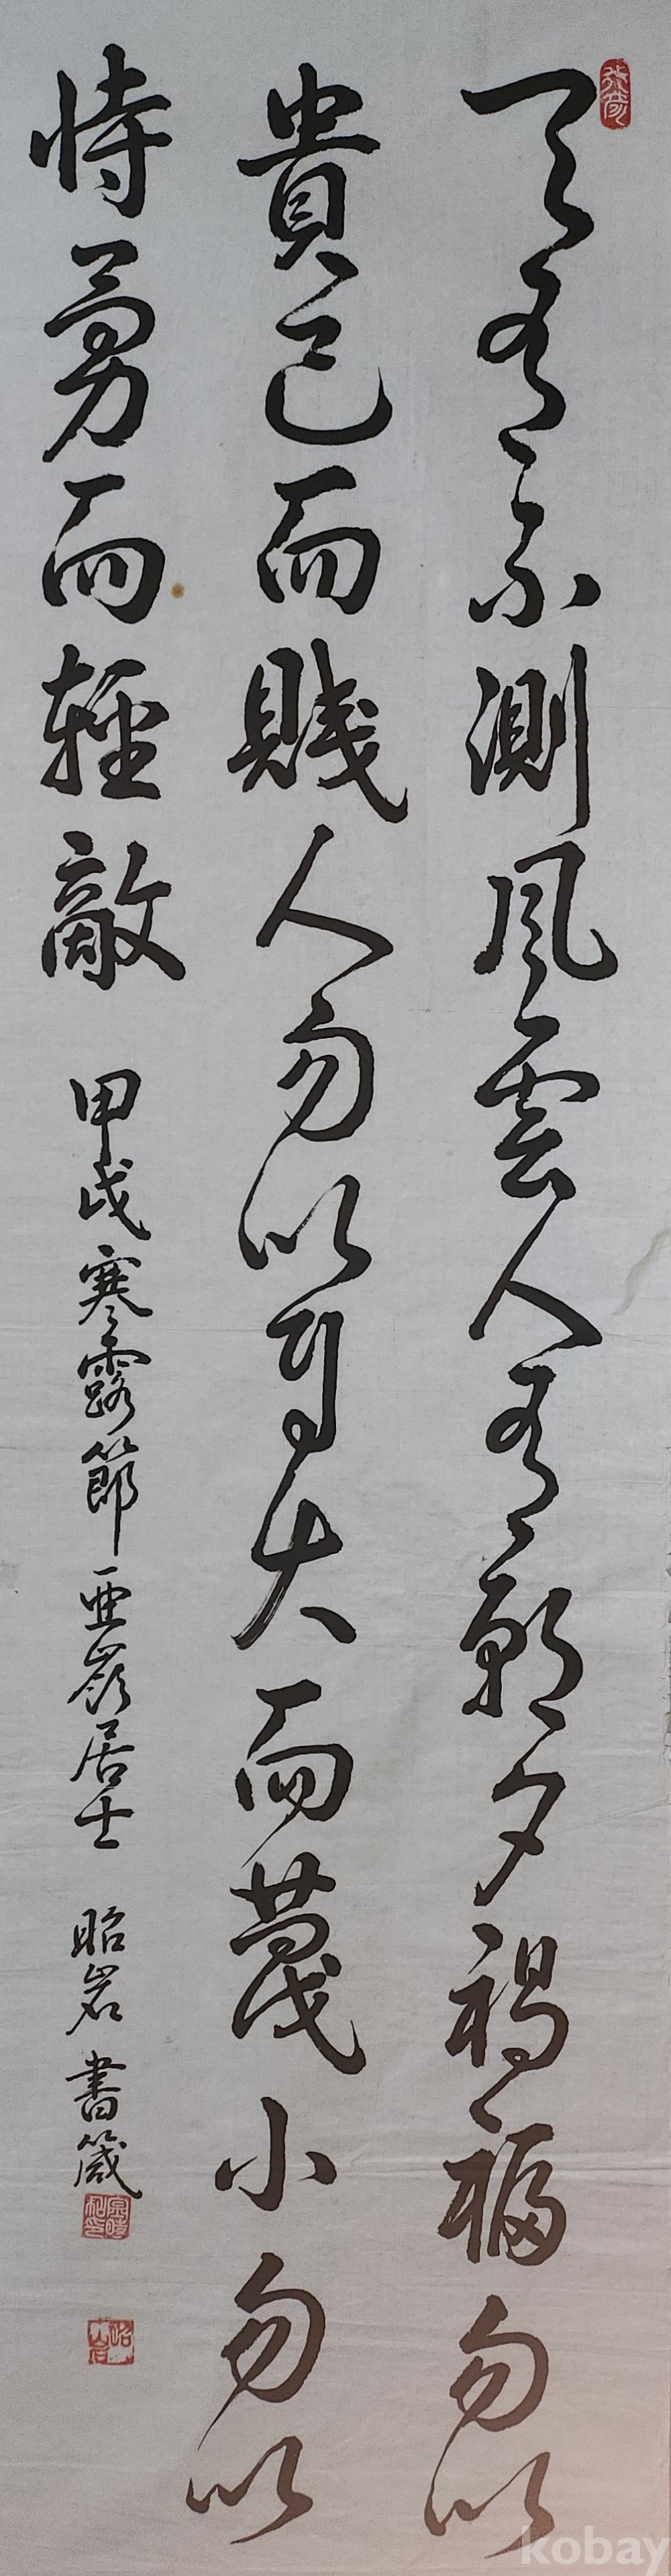 天有不測風雲人有朝夕禍福勿以
貴己而賤人勿以自大而蔑小勿以
恃勇而輕敵
甲戌寒露節 亞嶺居士 昭岩書箴
kobay